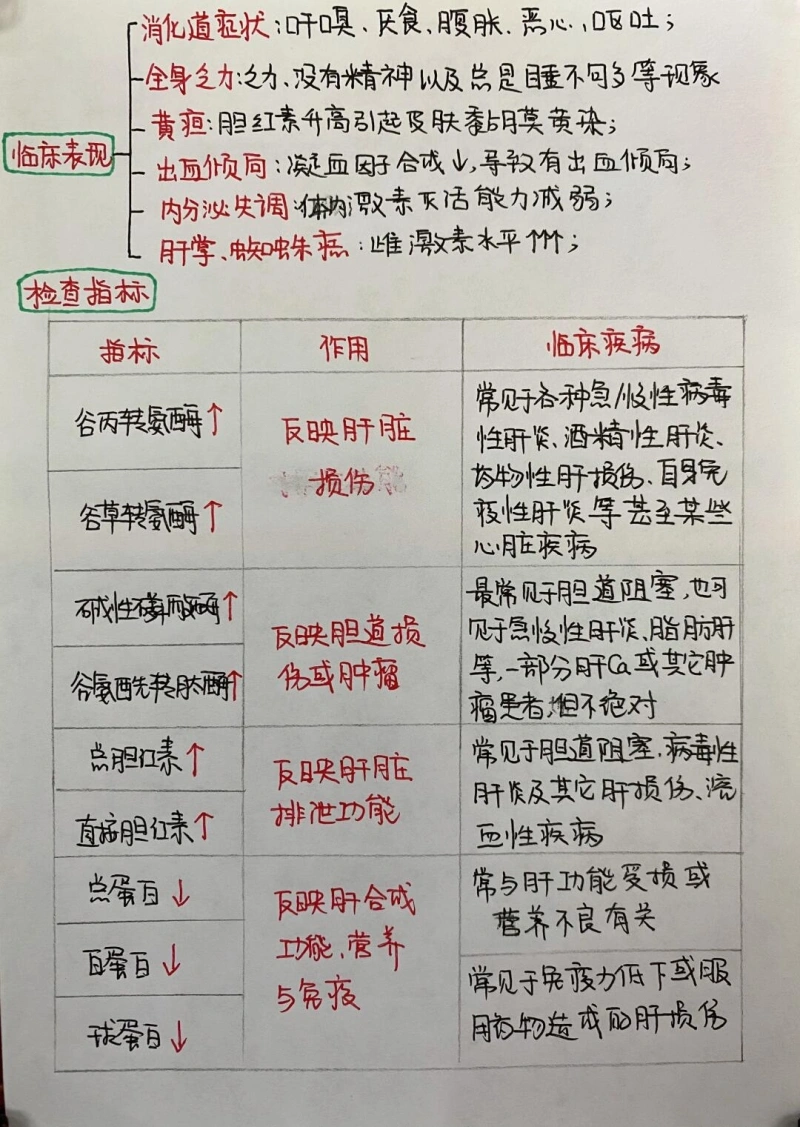 消化道症状:呼嗅、厌食、腹胀、恶心、呕吐;
全身乏力:乏力、没有精神以及总是睡不够多等现象
黄疸:胆红素升高引起皮肤黏膜黄染;
临床表现
出血倾向:凝血因子合成↓,导致有出血倾向;
内分泌失调:体内激素灭活能力减弱;
肝掌、蜘蛛痣:雌激素水平↑↑↑;
检查指标
指标 作用 临床疾病
谷丙转氨酶↑
谷草转氨酶↑
反映肝脏
损伤
常见于各种急/慢性病毒
性肝炎、酒精性肝炎、
药物性肝损伤、自身免
疫性肝炎等甚至某些
心脏疾病
碱性磷酸酶↑
谷氨酰转肽酶↑
反映胆道损
伤或肿瘤
最常见于胆道阻塞,也可
见于急慢性肝炎、脂肪肝
等,一部分肝Ca或其它肿
瘤患者,但不绝对
总胆红素↑
直接胆红素↑
反映肝脏
排泄功能
常见于胆道阻塞、病毒性
肝炎及其它肝损伤、溶
血性疾病
总蛋白↓
白蛋白↓
球蛋白↓
反映肝合成
功能、营养
与免疫
常与肝功能受损或
营养不良有关
常见于免疫力低下或服
用药物造成的肝损伤